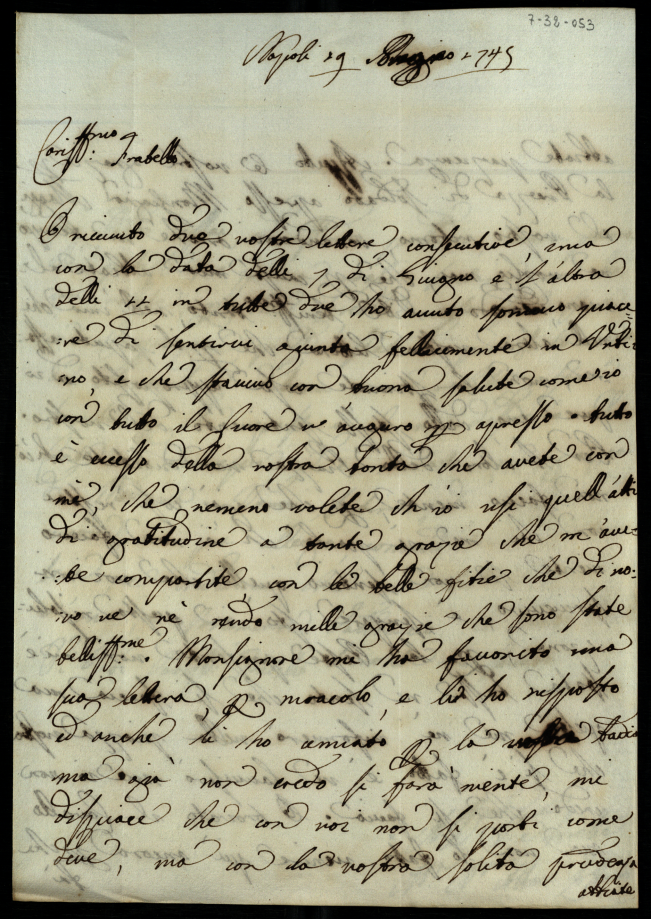 7-32-053
Napoli 29 1745
Cariss.mo Fratello
O riceuuto due vostre lettere consecutive una
con la data delli 7 di Giugno è l'altra
delli 11 in tutte due ho auuto sommo piace=
:re di sentirvi giunto fellicimente in Urbi:
:no, e che stavivo con buona salute come io
con tutto il Cuore v'auguro in apresso tutto
è ecesso della vostra bontà che avete con
mè, che nemeno volete ch'io usi quell'atti
di gratitudine a tante grazie che m'ave:
:te compartite, con le belle fitie che di no:
vo ve nè rendo mille grazie che sono state
belliss.me. Monsignore mi ha favorito una
sua lettera, p miracolo, e li ho risposto
ed anche li ho p la
ma già non credo si farà niente, mi
dispiace che con voi non si porti come
deve, ma con la vostra solita prudenza